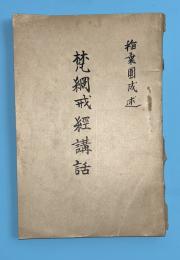 梵網戒經講話
圓成述